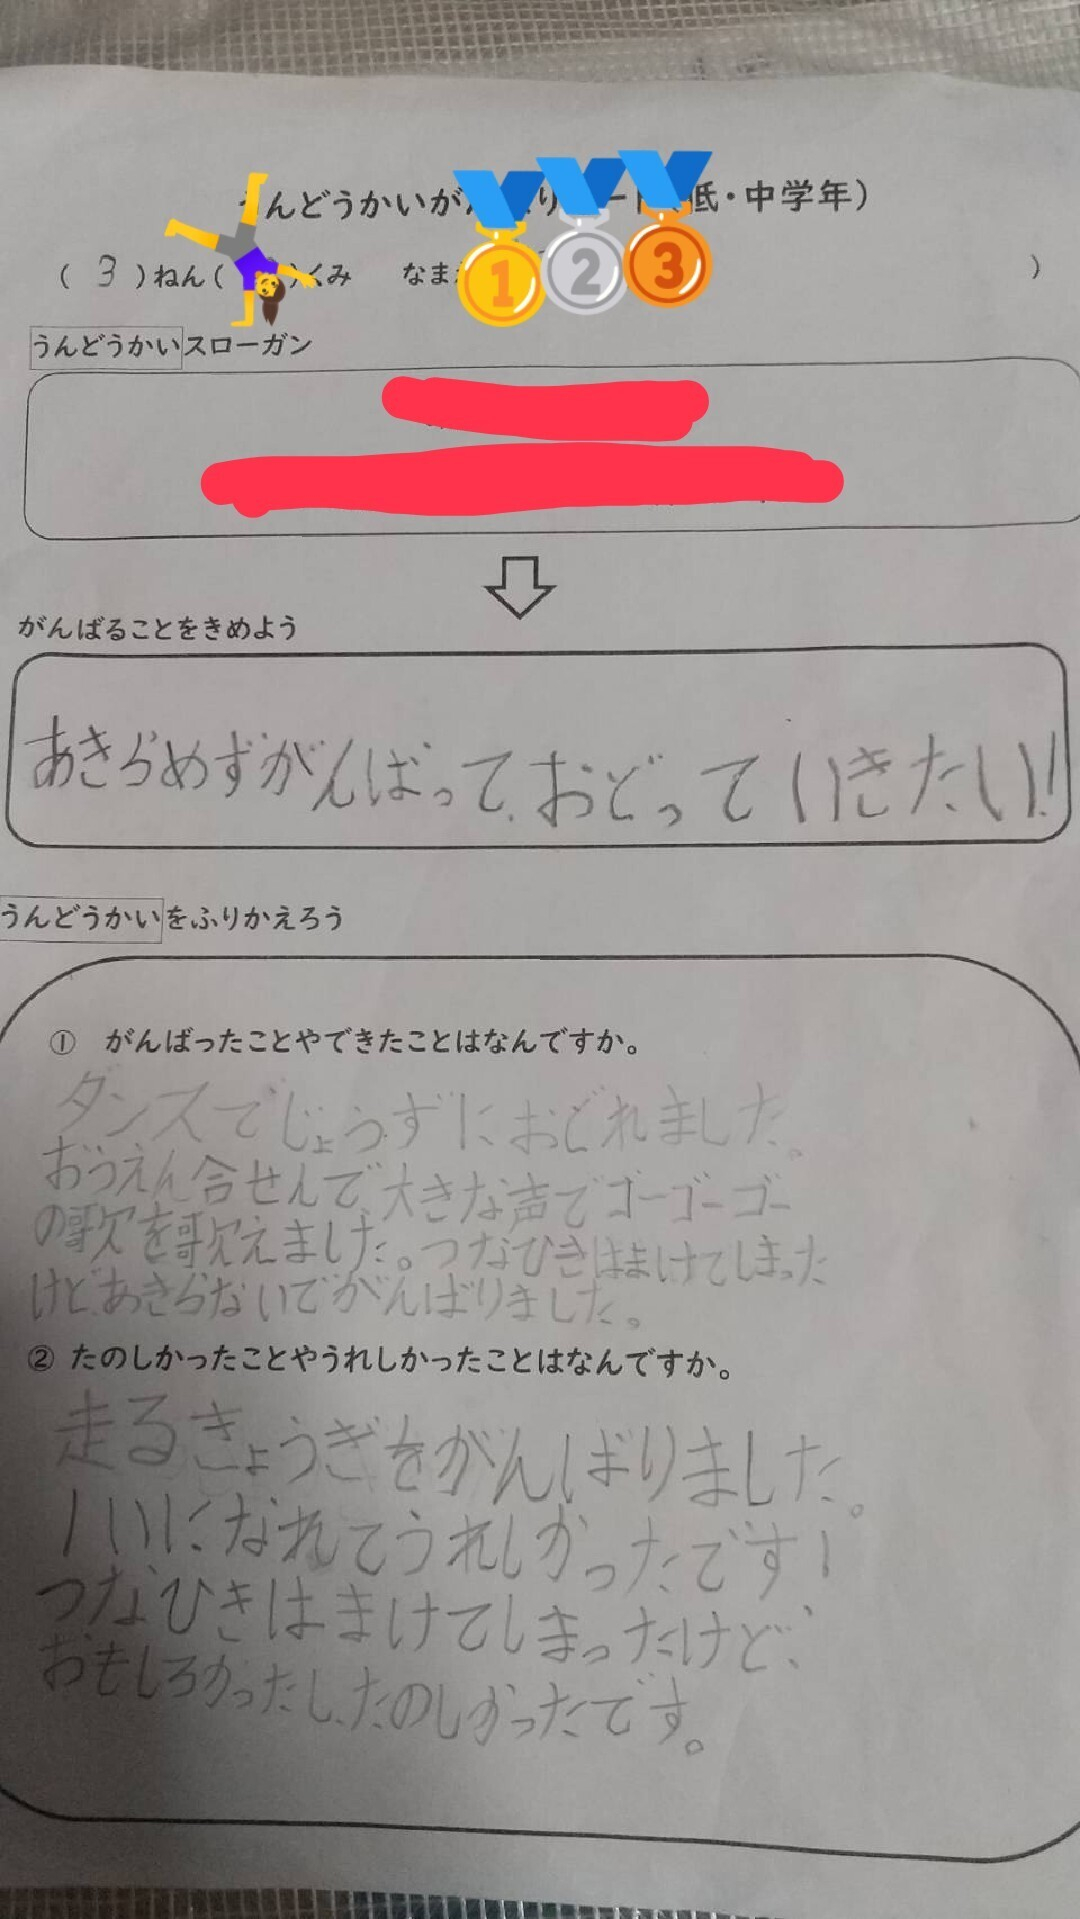 うんどうかいが り ード（低・中学年）
（ 3 ）ねん（ ）くみ なまえ ）
うんどうかいスローガン
がんばることをきめよう
あきらめずがんばって、おどっていきたい!!
うんどうかいをふりかえろう
① がんばったことやできたことはなんですか。
ダンスでじょうずにおどれました。
おうえん合せんで大きな声でゴーゴーゴー
の歌を歌えました。つなひきはまけてしまった
けど、あきらないでがんばりました。
② たのしかったことやうれしかったことはなんですか。
走るきょうぎをがんばりました。
1いになれてうれしかったです!
つなひきはまけてしまったけど、
おもしろかったし、たのしかったです。
1
2
3